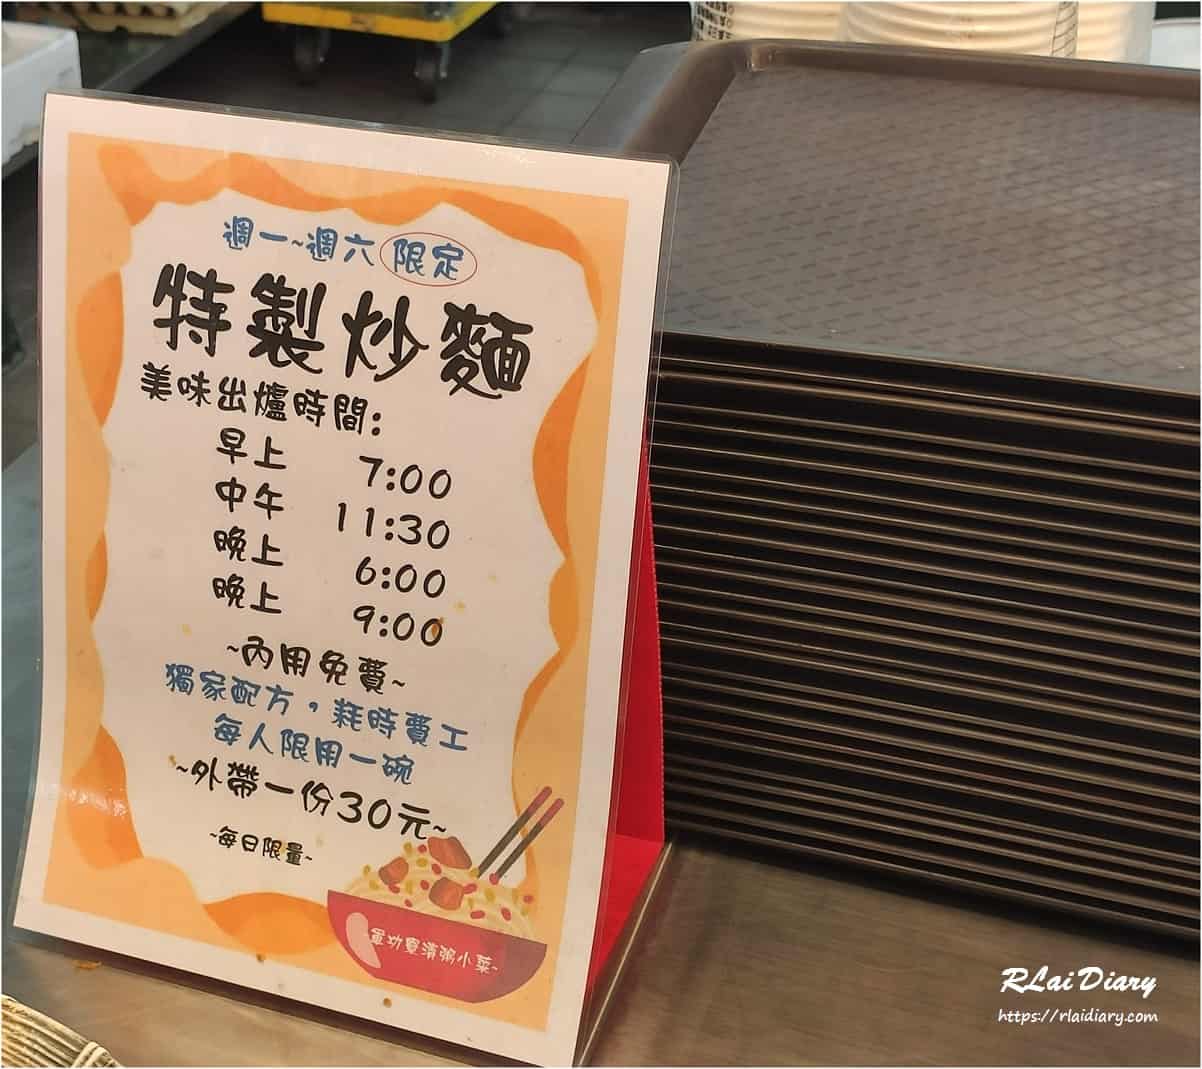 週一~週六 限定
特製炒麵
美味出爐時間:
早上 7:00
中午 11:30
晚上 6:00
晚上 9:00
~內用免費~
獨家配方，耗時費工
每人限用一碗
~外帶一份30元~
~每日限量~
~軍功寮清粥小菜~
RLai Diary
https://rlaidiary.com